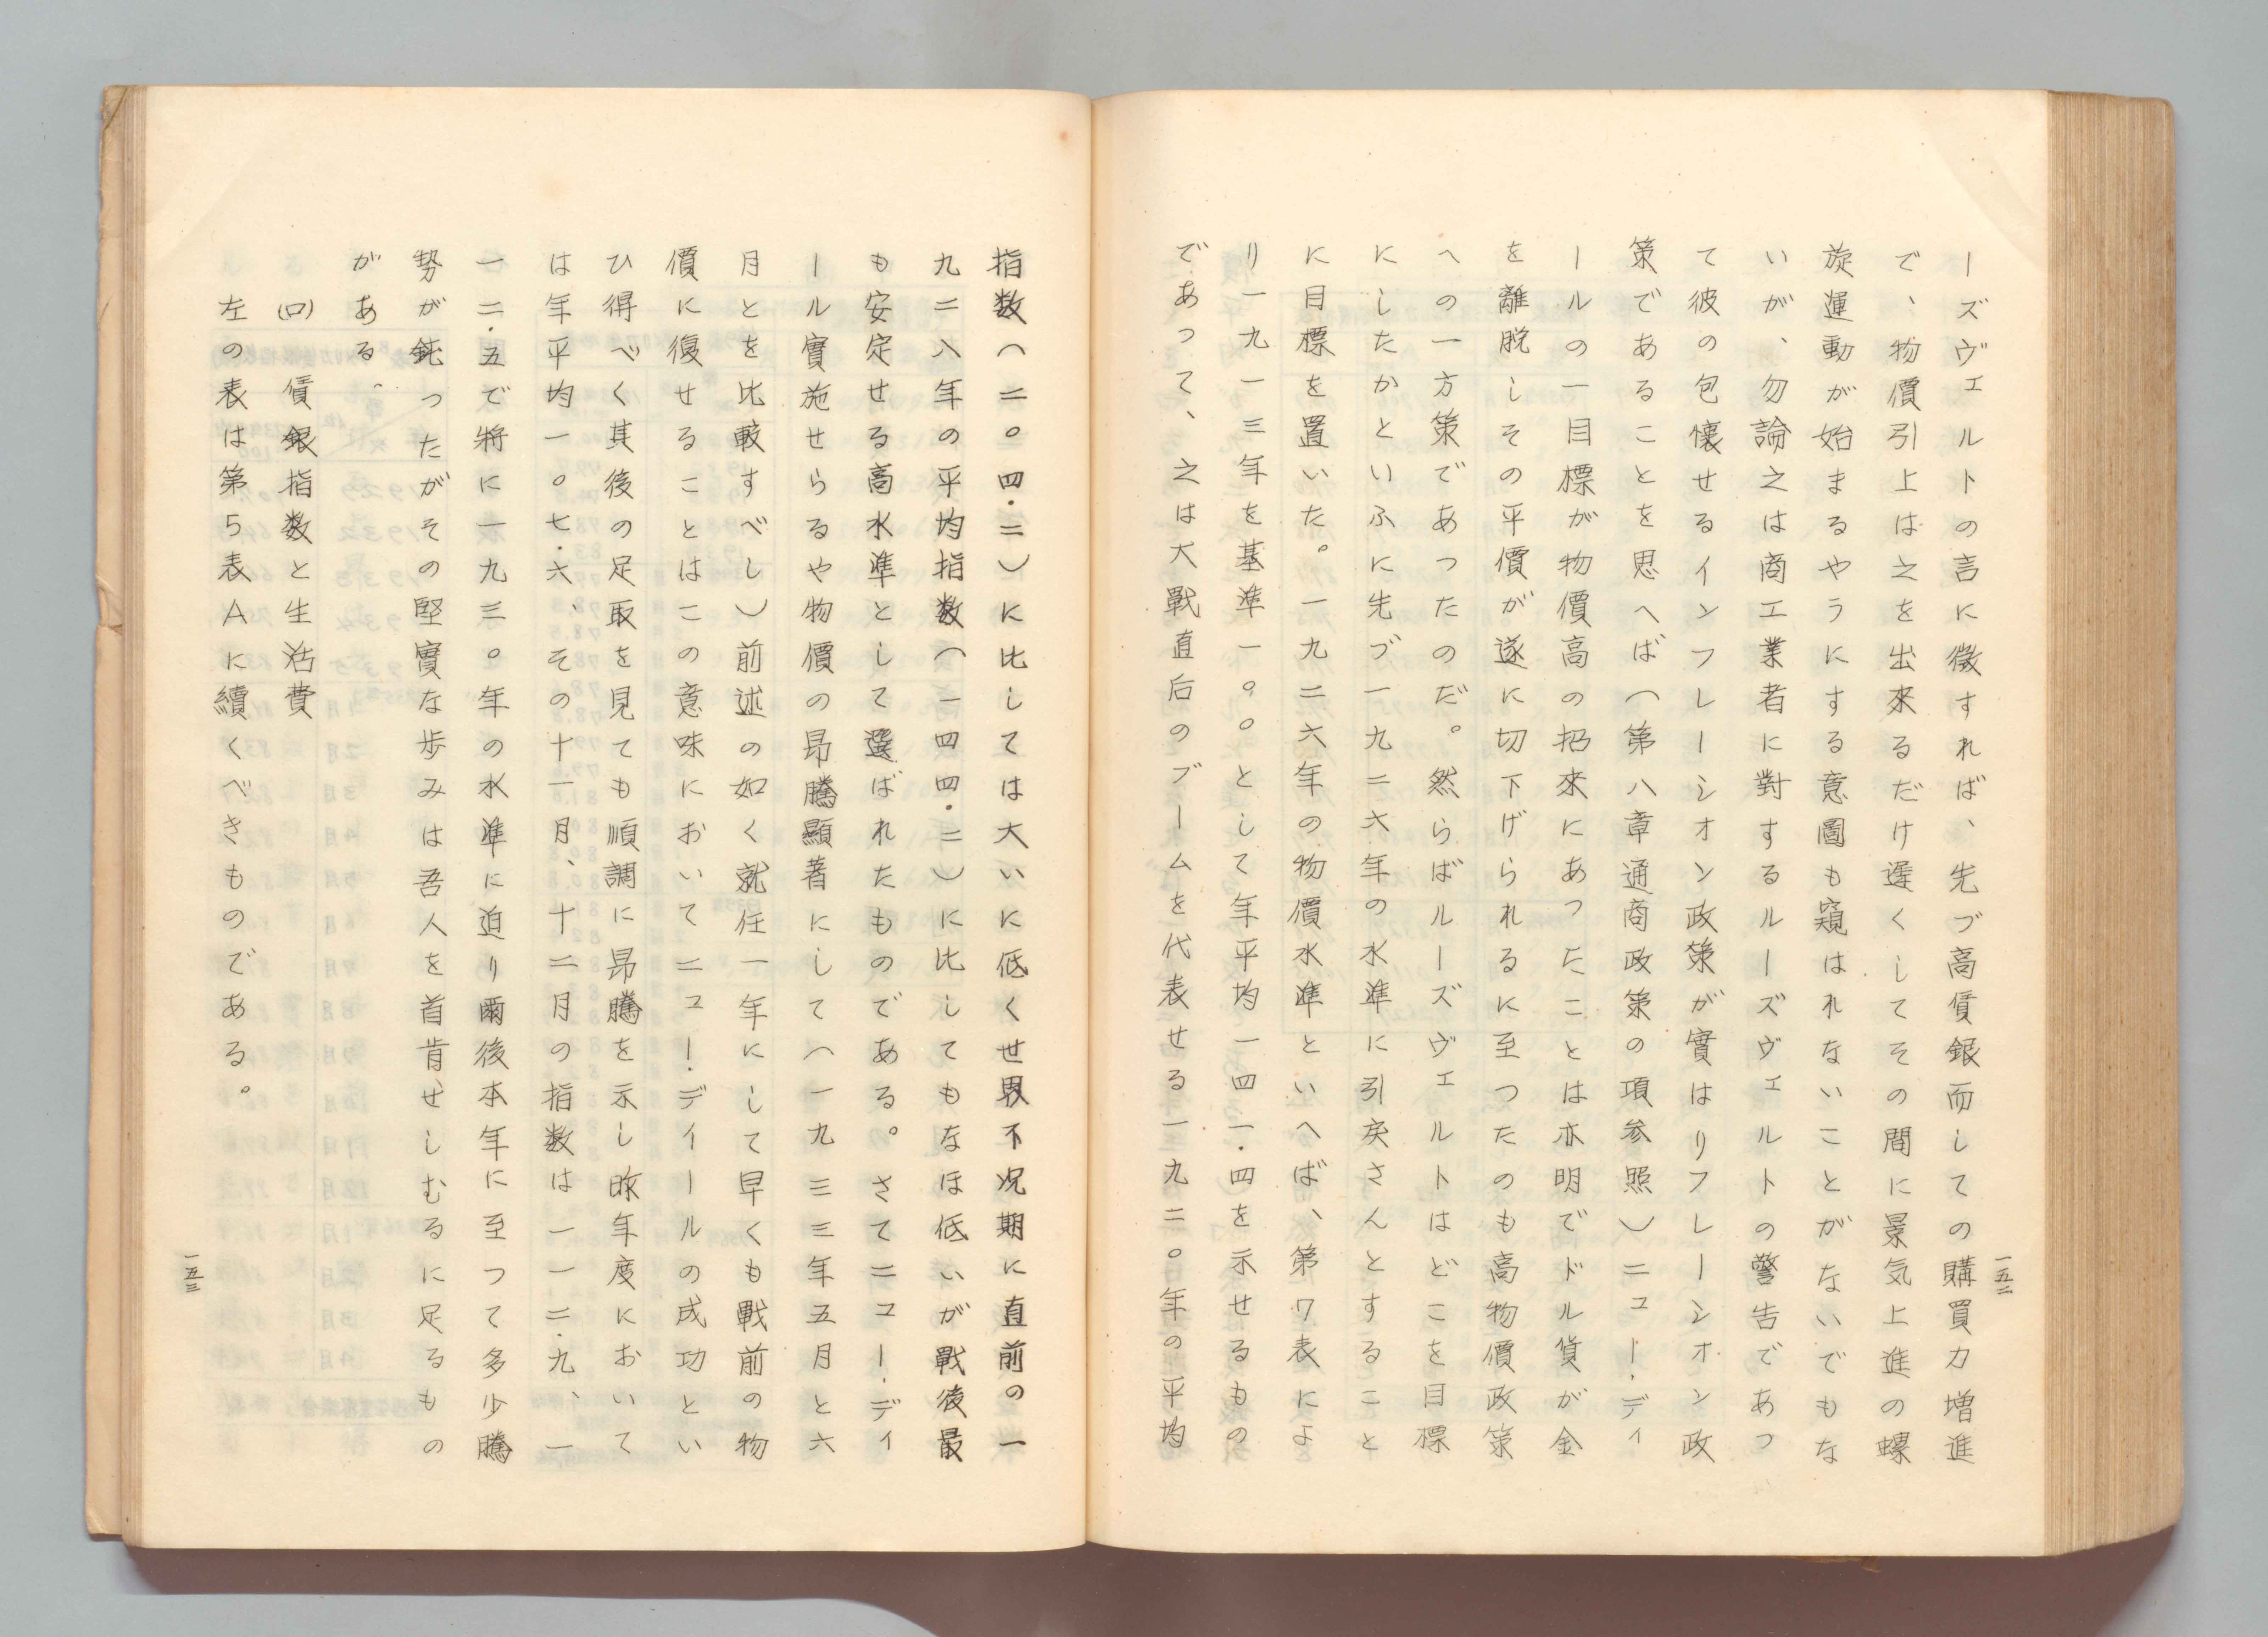 ーズヴェルトの言に徴すれば、先づ高賃銀而しての購買力増進
で、物價引上は之を出來るだけ遲くしてその間に景気上進の螺
旋運動が始まるやうにする意圖も窺はれないことがないでもな
いが、勿論之は商工業者に對するルーズヴェルトの警告であつ
て彼の包懷せるインフレーシオン政策が實はリフレーシオン政
策であることを思へば（第八章通商政策の項参照）ニユー・ディ
ールの一目標が物價高の招來にあつたことは亦明でドル貨が金
を離脱しその平價が遂に切下げられるに至つたのも高物價政策
への一方策であつたのだ。然らばルーズヴェルトはどこを目標
にしたかといふに先づ一九二六年の水準に引戻さんとすること
に目標を置いた。一九二六年の物價水準といへば、第7表によ
り一九一三年を基準一〇〇として年平均一四一・四を示せるもの
であつて、之は大戰直后のブームを代表せる一九二〇年の平均
一五二
指数（二〇四・二）に比しては大いに低くせ界不況期に直前の一
九二八年の平均指数（一四四・二）に比してもなほ低いが戰後最
も安定せる高水準として選ばれたものである。さてニユー・ディ
ール實施せらるや物價の昻騰顯著にして（一九三三年五月と六
月とを比較すべし）前述の如く就任一年にして早くも戰前の物
價に復せることはこの意味においてニユー・ディールの成功とい
ひ得べく其後の足取を見ても順調に昻騰を示し昨年度において
は年平均一〇七・六、その十一月、十二月の指数は一一二・九、一
一二・五で將に一九三〇年の水準に迫り爾後本年に至つて多少騰
勢が鈍つたがその堅實な歩みは吾人を首肯せしむるに足るもの
がある、
(ロ)　賃銀指数と生活費
左の表は第5表Aに續くべきものである。
一五三